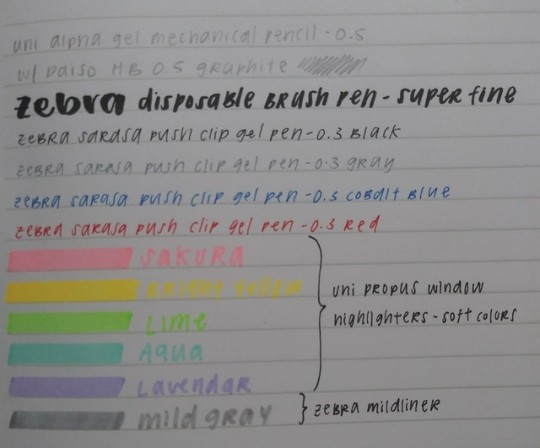 uni alpha gel mechanical pencil - 0.5
w/ Daiso HB 0.5 graphite
zebra disposable brush pen - super fine
zebra sarasa push clip gel pen - 0.3 black
zebra sarasa push clip gel pen - 0.3 gray
zebra sarasa push clip gel pen - 0.3 cobalt blue
zebra sarasa push clip gel pen - 0.3 red
sakura
bright yellow
lime
aqua
lavendar
mild gray
uni propus window
highlighters - soft colors
zebra mildliner